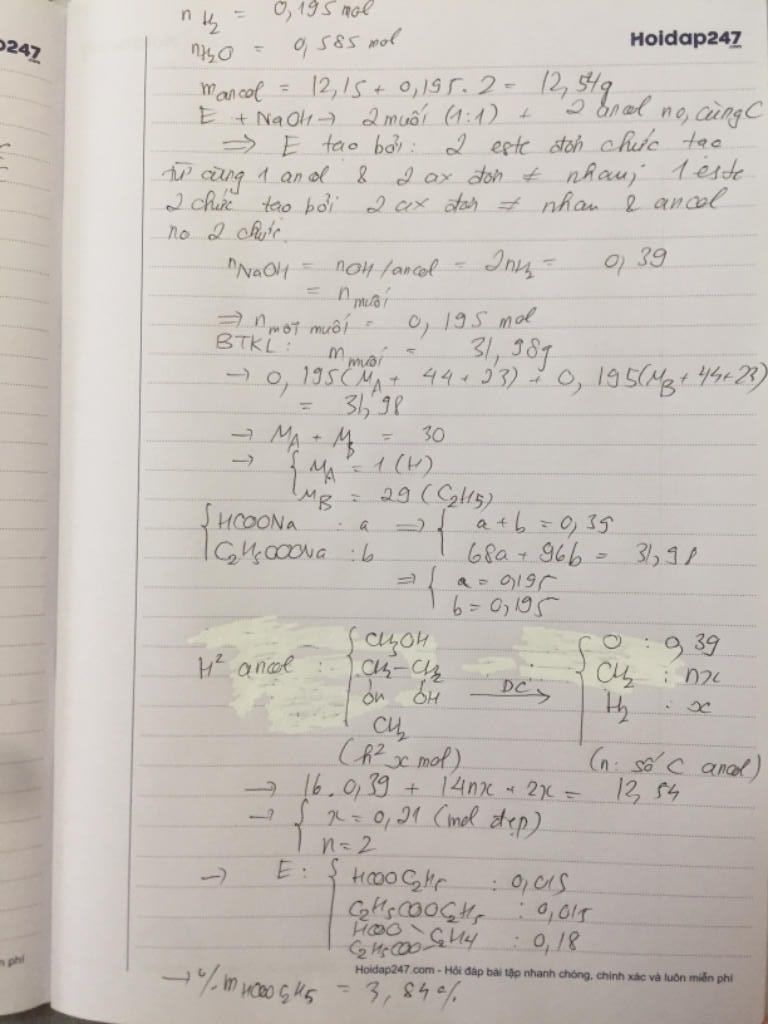 nH2 = 0,195 mol
nH2O = 0,585 mol
Hoidap247
p247
mancol = 12,15 + 0,195.2 = 12,54g
E + NaOH → 2 muối (1:1) + 2 ancol no, cùng C
⇒ E tạo bởi: 2 este đơn chức tạo
từ cùng 1 ancol & 2 ax đơn ≠ nhau; 1 este
2 chức tạo bởi 2 ax đơn ≠ nhau & ancol
no 2 chức.
nNaOH = nOH/ancol = 2nH2 = 0,39
= nmuối
⇒ nmột muối = 0,195 mol
BTKL: mmuối = 31,98g
→ 0,195(MA + 44+23) + 0,195(MB+44+23)
= 31,98
→ MA + MB = 30
→ { MA = 1 (H)
MB = 29 (C2H5)
{ HCOONa : a ⇒ { a+b = 0,39
C2H5COONa : b 68a + 96b = 31,98
⇒ { a = 0,195
b = 0,195
H2 ancol : { CH3OH { O : 0,39
CH2-CH2 ĐC→ CH2 : nx
OH OH H2 : x
CH2
(h2 x mol) (n: số C ancol)
→ 16.0,39 + 14nx + 2x = 12,54
→ { x = 0,21 (mol đẹp)
n = 2
→ E: { HCOOC2H5 : 0,015
C2H5COOC2H5 : 0,015
HCOO
C2H5COO C2H4 : 0,18
n phí
Hoidap247.com - Hỏi đáp bài tập nhanh chóng, chính xác và luôn miễn phí
→ % mHCOOC2H5 = 3,84%